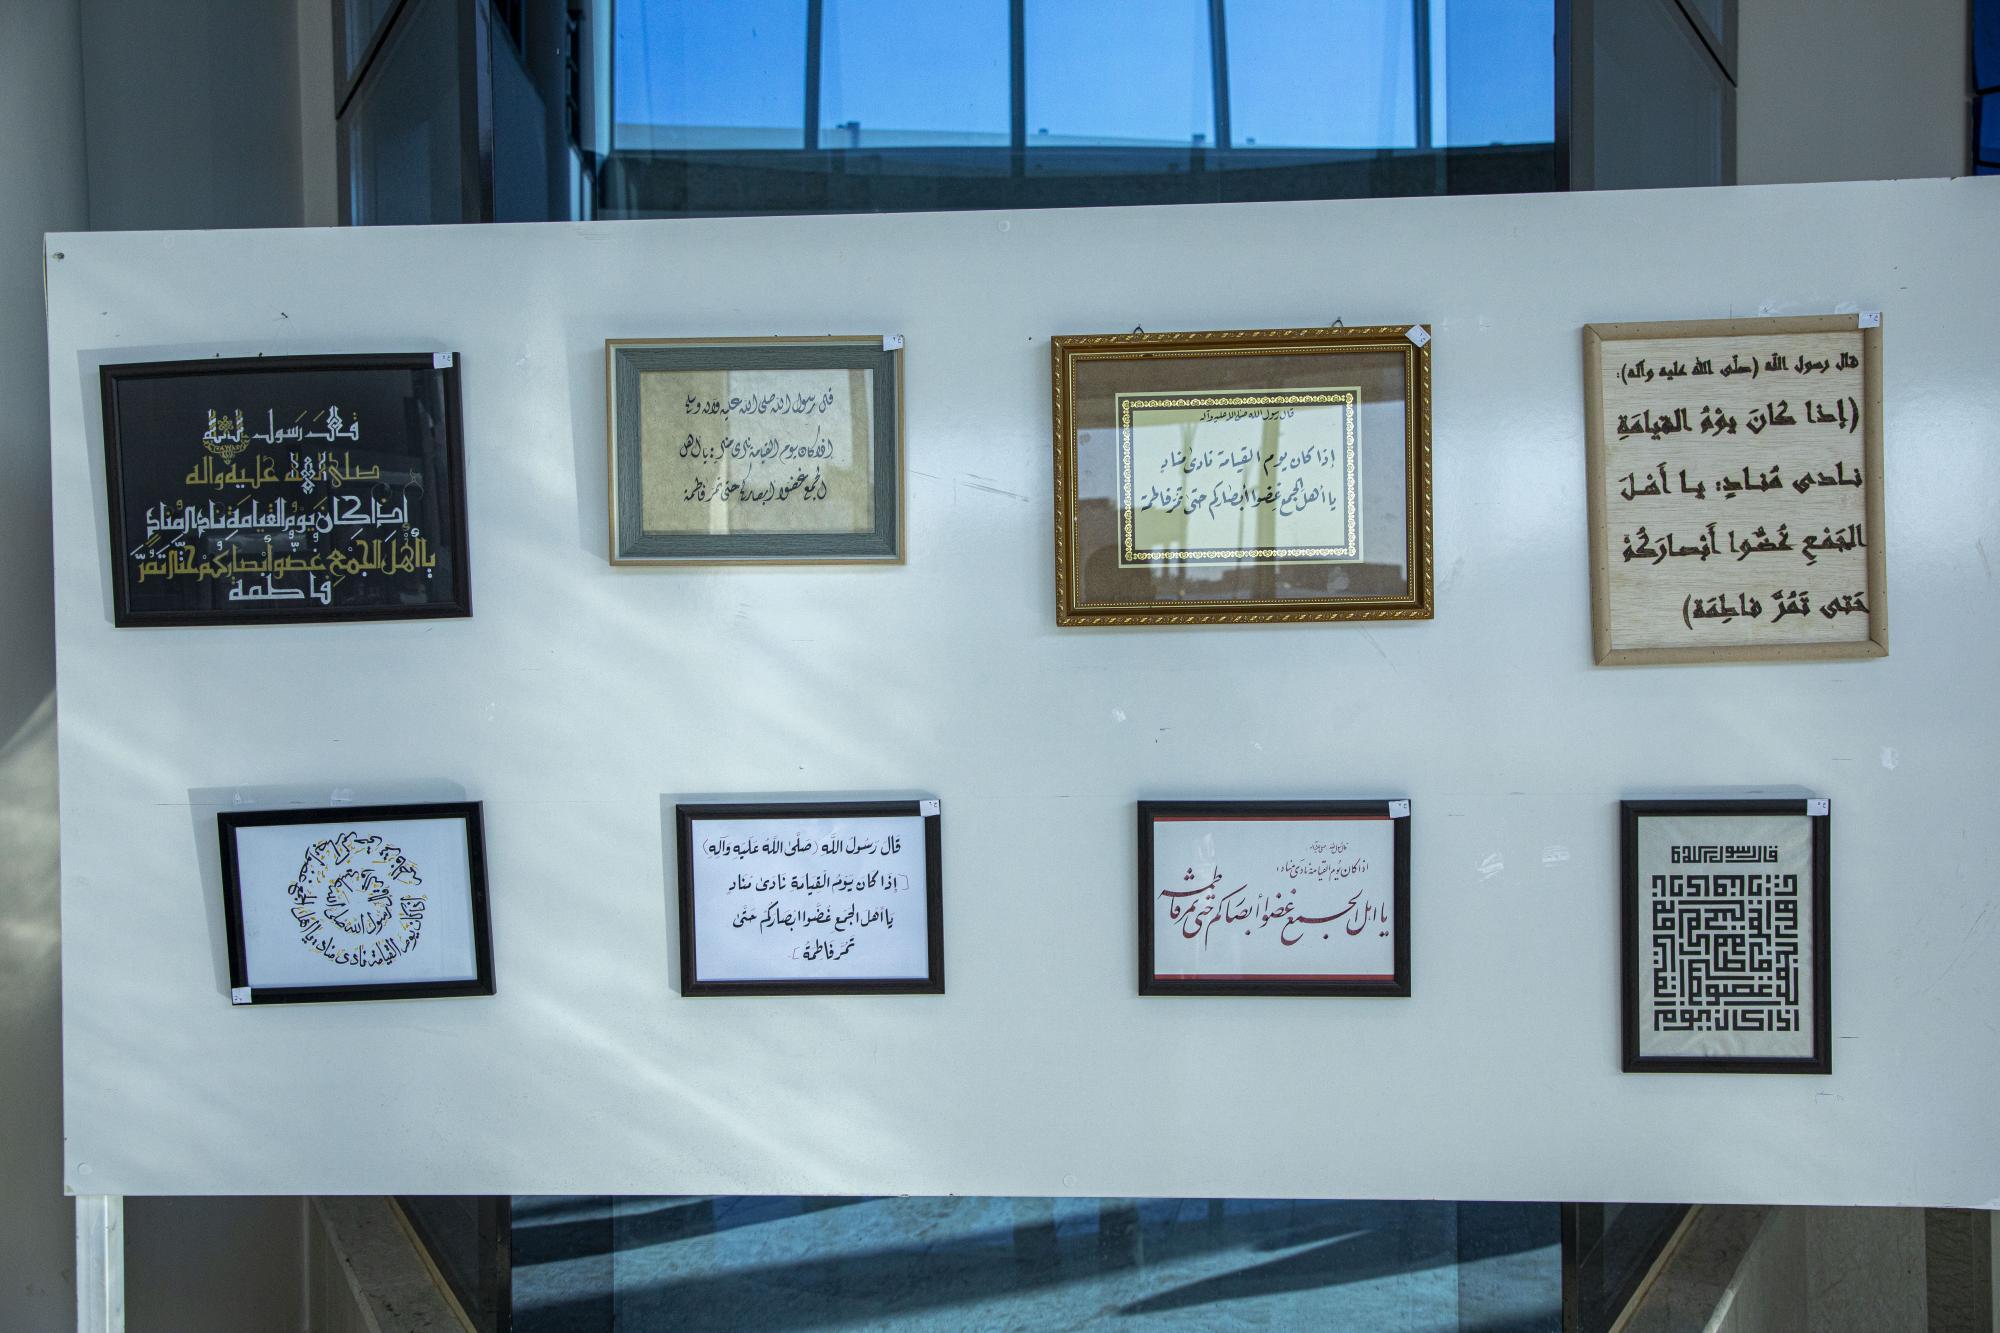 قال رسول الله
صلى الله عليه وآله
إذا كان يوم القيامة نادى مناد
يا أهل الجمع غضوا أبصاركم حتى تمر
فاطمة
قال رسول الله صلى الله عليه وآله وسلم
إذا كان يوم القيامة نادى مناد: يا اهل
الجمع غضوا ابصاركم حتى تمر فاطمة
قال رسول الله صلى الله عليه وآله
إذا كان يوم القيامة نادى مناد
يا أهل الجمع غضوا أبصاركم حتى تمر فاطمة
قال رسول الله (صلّى الله عليه وآله):
(إذا كَانَ يوْمُ القيامَةِ
نادى مُنادٍ: يا أَهْلَ
الجَمْعِ غُضُّوا أَبْصارَكُمْ
حَتى تَمُرَّ فاطِمَة)
قال رسول الله صلى الله
إذا كان يوم القيامة نادى مناد: يا اهل
قَال رَسُولَ اللَّهِ (صَلَّى اللَّهُ عَلَيْهِ وَآلِهِ)
[إذا كَان يَوْمُ الْقِيَامَةِ نَادَى مُنَادٍ
يَا أَهْل الجَمع غُضُّوا ابْصَارَكُم حَتَّى
تَمُر فَاطِمَةُ]
اذا كان يوم القيامة نادى مناد:
يا اهل الجمع غضوا أبصاركم حتى تمر فاطمة
قال رسول الله
اذا كان يوم